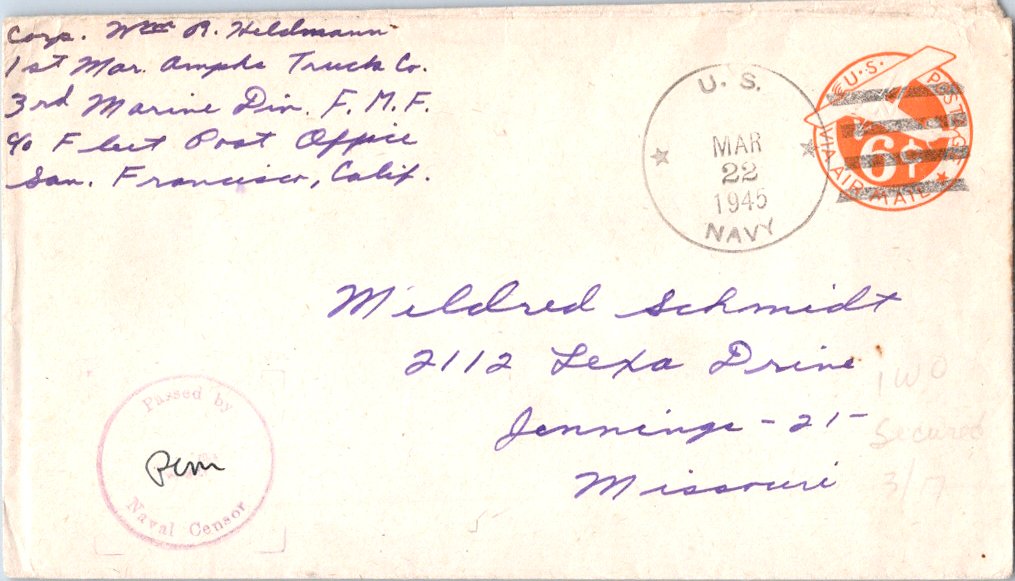 Corp. Wm R. Heldmann
1st Mar. Amphi Truck Co.
3rd Marine Div. F.M.F.
℅ Fleet Post Office
San. Francisco, Calif.
U.S.
MAR
22
1945
NAVY
U.S. POSTAGE
6¢
VIA AIR MAIL
Mildred Schmidt
2112 Lexa Drive
Jennings - 21 -
Missouri
Passed by
Naval Censor
Secured
3/17